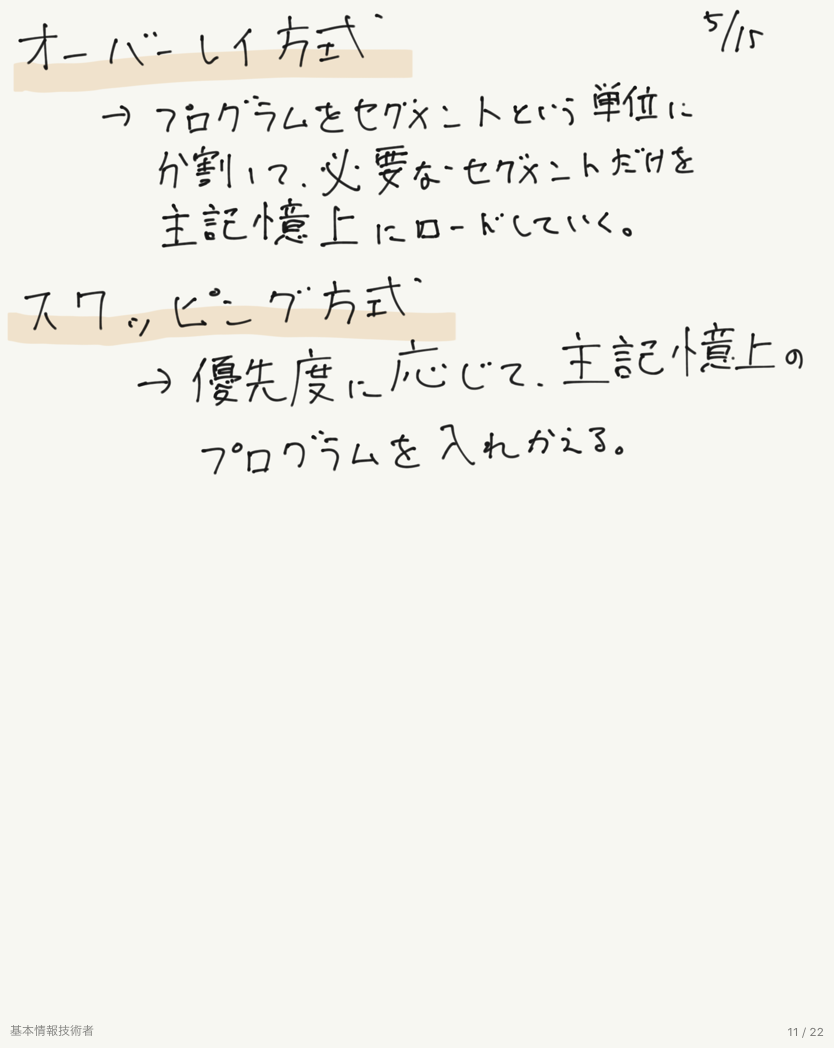 5/15
オーバーレイ方式
→ プログラムをセグメントという単位に
分割して、必要なセグメントだけを
主記憶上にロードしていく。
スワッピング方式
→ 優先度に応じて、主記憶上の
プログラムを入れかえる。
基本情報技術者
11 / 22